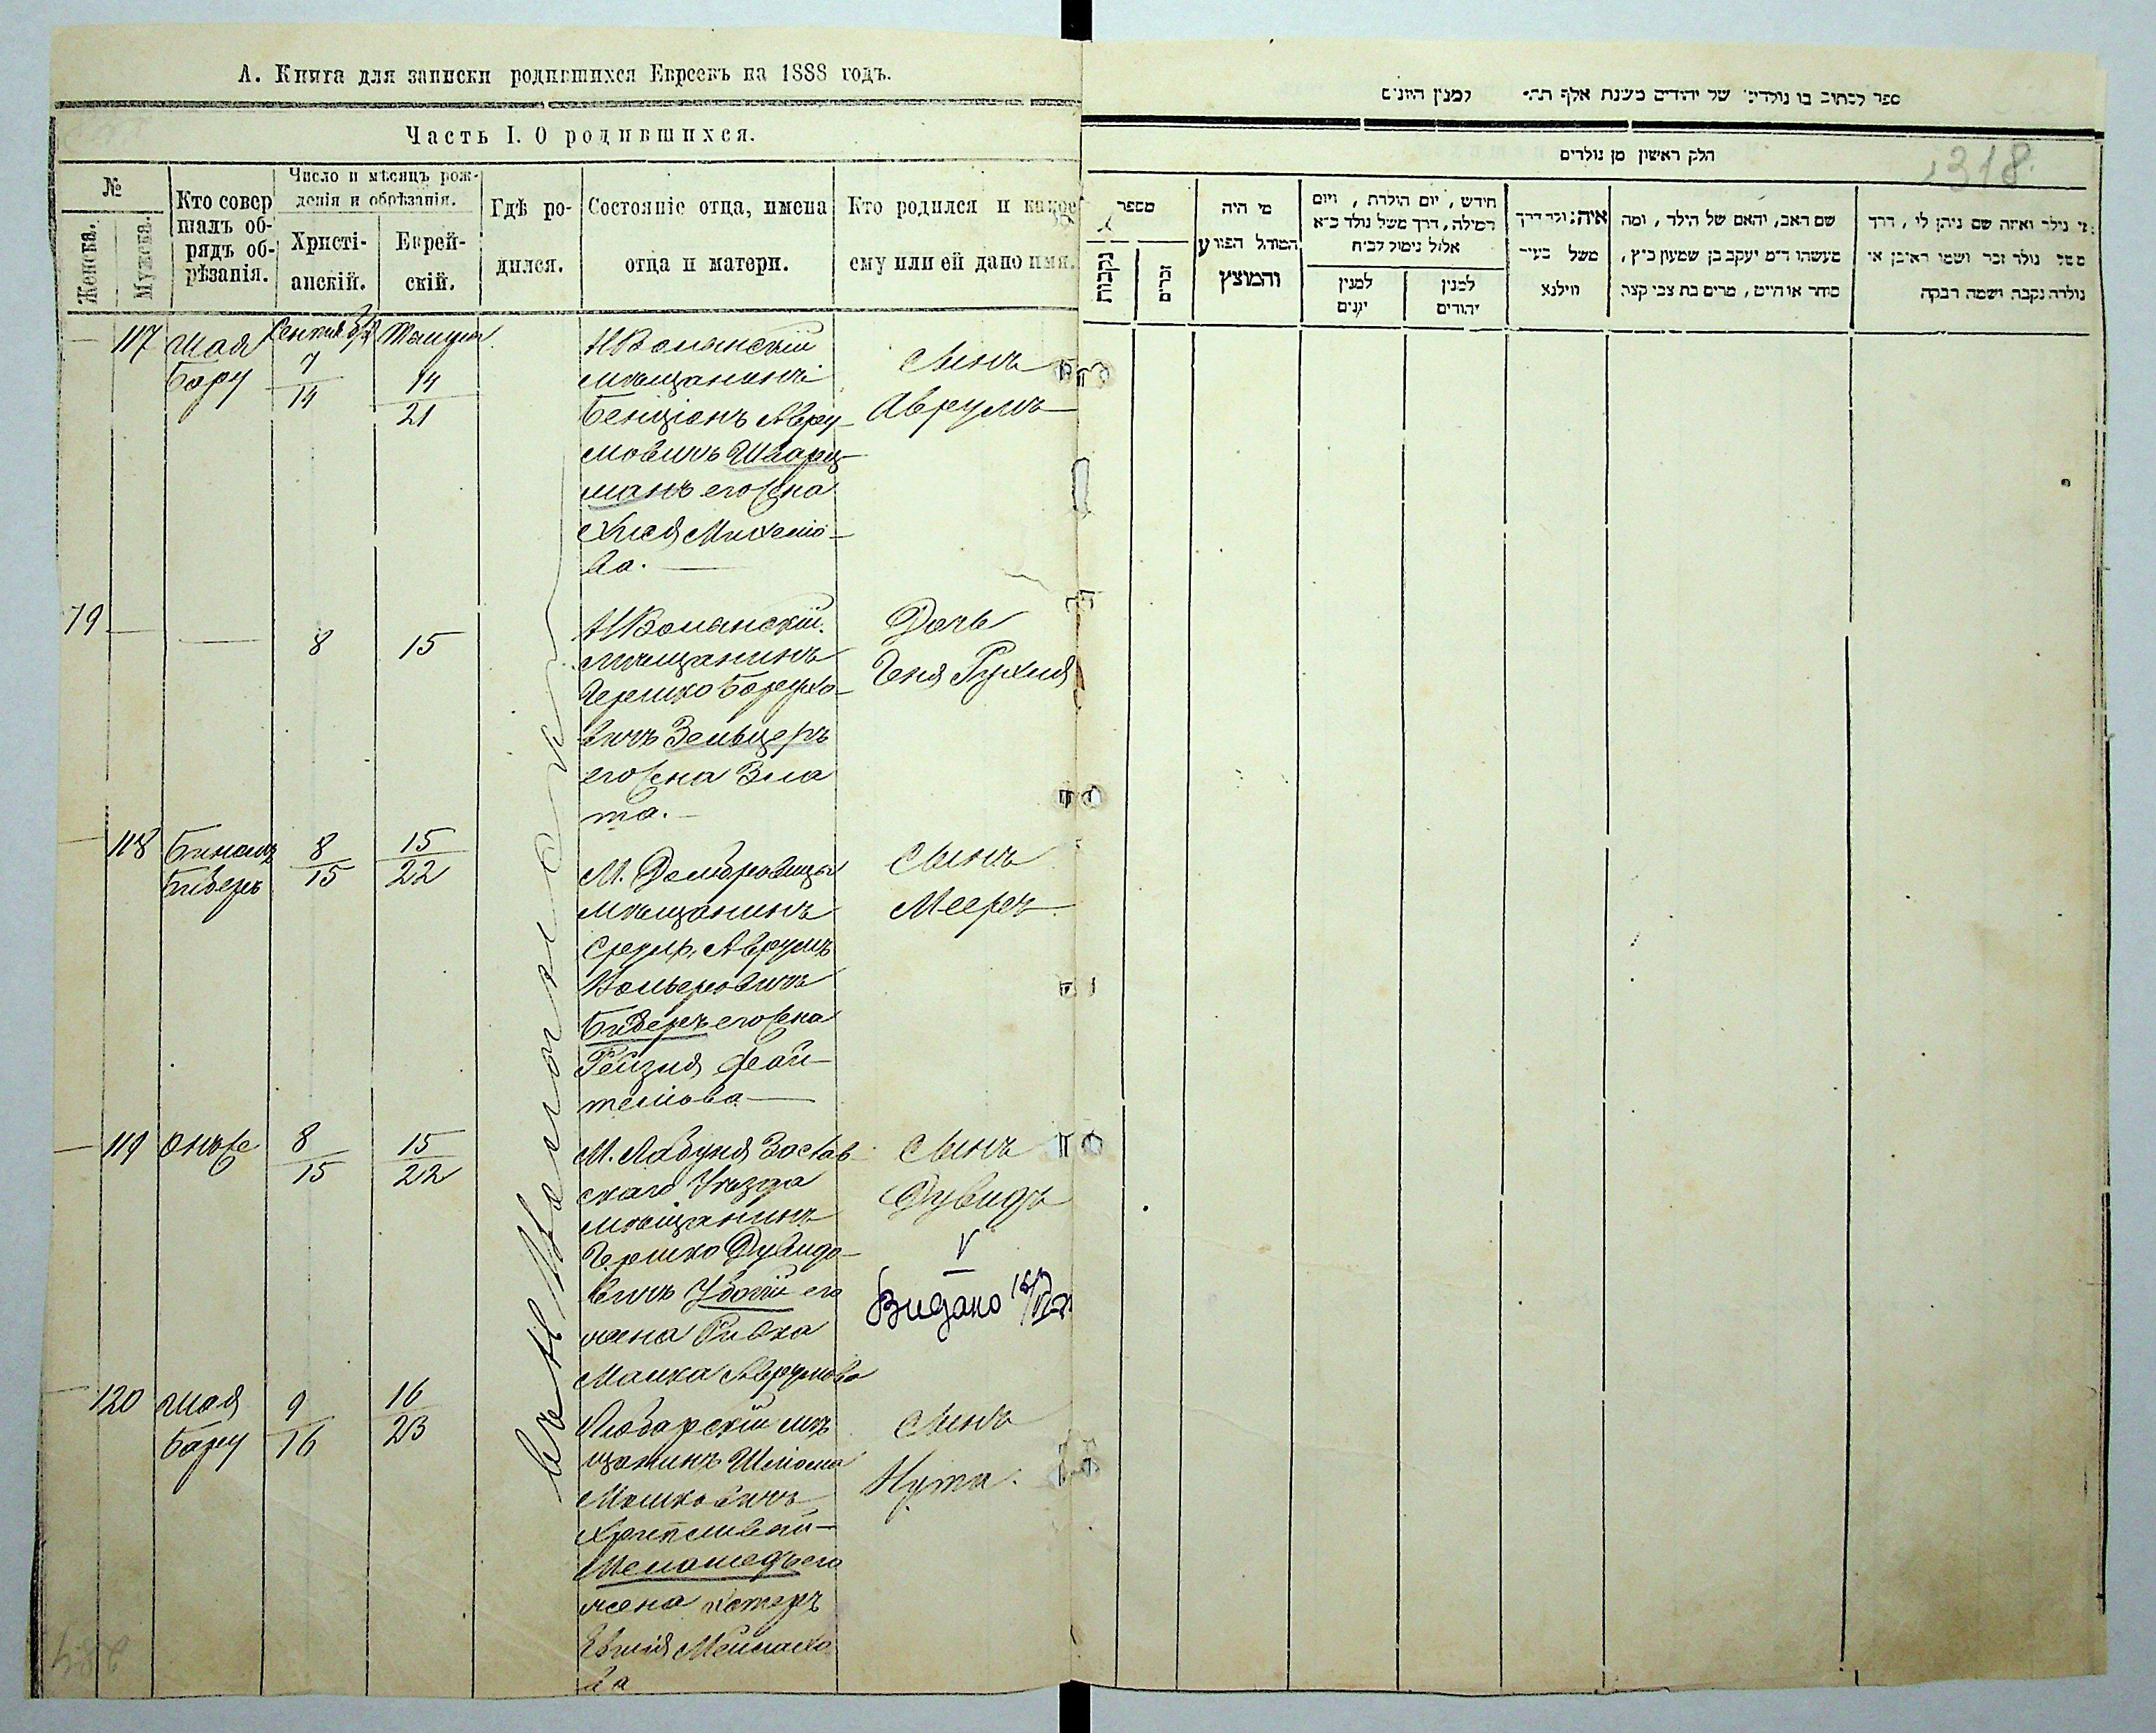 А. Книга для записки родившихся Евреевъ на 1888 годъ.
Часть I. О родившихся.
№
Женска.
Мужска.
Кто совер
шалъ об-
рядъ об-
рѣзанія.
Число и мѣсяцъ рож-
денія и обрѣзанія.
Христі-
анскій.
Еврей-
скій.
Гдѣ ро-
дился.
Состояніе отца, имена
отца и матери.
Кто родился и какое
ему или ей дано имя.
117
Шая
Бару
7
14
14
21
НВолынскій
мѣщанинъ
Бенціонъ Авру-
мовичъ Шварц-
манъ его жена
ва.
Сынъ
Аврумъ
79
8
15
НВолынскій
мѣщанинъ
Гершко Борухо-
вичъ Зельцеръ
его жена Зла
та.
Дочь
Геня Рухля
118
Биберъ
8
15
15
22
М. Домбровицы
мѣщанинъ
Аврумъ
Вольфовичъ
Биберъ его жена
Рейзля Фай-
телова
Сынъ
Мееръ
119
Онъ же
8
15
15
22
М. Лабуня Заслав
скаго Уѣзда
мѣщанинъ
Гершко Дувидо-
вичъ Убогій его
жена Ривка
Малка Аврумова
Сынъ
Дувидъ
V
Видано
120
Шая
Бару
9
16
16
23
Любарскій мѣ
щанинъ Шлома
Мошковичъ
Меламедъ его
жена Эстеръ
ва
Сынъ
Нута.
ספר לכתוב בו נולדים של יהודים משנת אלף תת׳ למנין היונים
318
חלק ראשון מן נולדים
מספר
נקבות
זכרים
מי היה
המוהל הפורע
והמוצץ
חודש, יום הולדת, ויום
המילה, דרך משל נולד כ״א
אלול נימול לכ״ח
למנין
יונים
למנין
יהודים
איה נולד דרך
משל בעיר
ווילנא
שם האב, והאם של הילד, ומה
מעשהו ד״מ יעקב בן שמעון כ״ץ,
סוחר או חייט, מרים בת צבי קצב
מי נולד ואיזה שם ניתן לו, דרך
משל נולד זכר ושמו ראובן או
נולדה נקבה ושמה רבקה